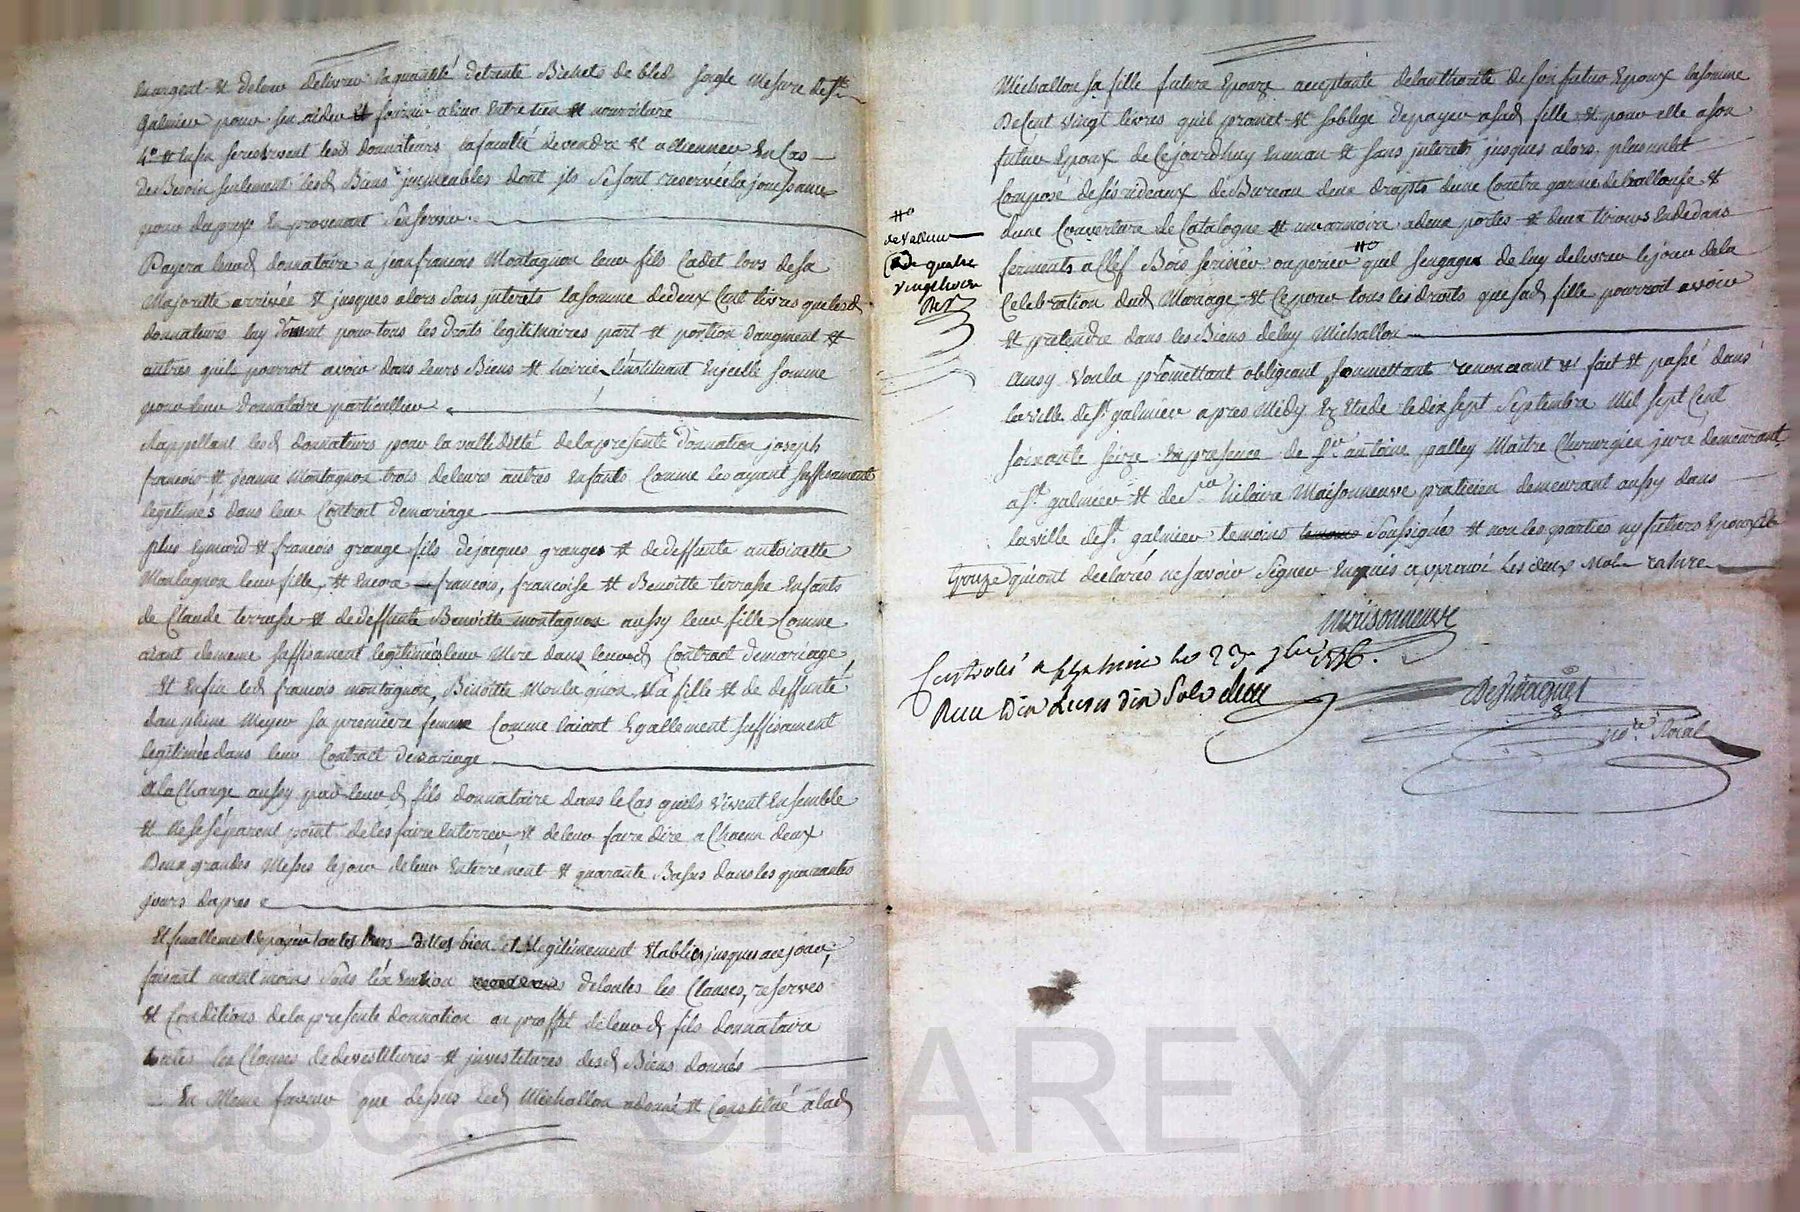 en argent et de leur delivrer la quantité de trente Bichets de bled seigle mesure de St
Galmier pour sen aider et fournir a leur entretien et nourriture
4° Et enfin se reservent lesd donnateurs la faculté de vendre et alienner en cas
de Besoin seulement lesd Biens immeubles dont ils se sont reservée la jouissance
pour du prix en provenant sen servir
Payera led donnataire a jean francois Montagnon leur fils Cadet lors de sa
Majorité arrivée et jusques alors sans interets la somme de deux Cent livres que lesd
donnateurs luy donnent pour tous les droits legitimaires part et portion daugment et
autres quil pourroit avoir dans leurs Biens et hoirie linstituant en icelle somme
pour leur donnataire particullier
Rappellant lesd donnateurs pour la vallidité de la presente donnation joseph
francois et jeanne Montagnon trois de leurs autres enfants comme les ayant suffisament
legitimés dans leur Contrat de mariage
plus Eymard et francois grange fils de jacques grange et de deffunte antoinette
Montagnon leur fille, et encore francois, francoise et Benoitte terrasse enfants
de Claude terrasse et de deffunte Benoitte montagnon aussy leur fille comme
aiant de meme suffisament legitimés leur Mere dans leurd Contract de mariage,
et enfin led francois montagnon, Benoitte Montagnon sa fille et de deffunte
dauphine Meyer sa premiere femme comme laiant egallement suffisament
legitimée dans leur Contract de mariage
A la Charge aussy par leurd fils donnataire dans le cas quils vivent ensemble
et ne se séparent point de les faire enterrer et de leur faire dire a Chacun deux
Deux grandes Messes le jour de leur enterrement et quarante Basses dans les quarantes
jours dapres
Et finallement de payer toutes leurs dettes bien et legitimement etablies jusques a ce jour,
faisant neant moins sous l'exeution de toutes les Clauses, reserves
et conditions de la presente donnation au proffit de leurd fils donnataire
toutes les Clauses de devestitures et investitures desd Biens donnés
En Meme faveur que dessus led Michallon a donné et Constitué a lad
Michallon sa fille future Epouze acceptante de lauthorité de son futur Epoux la somme
De Cent vingt livres quil promet et soblige de payer a sad fille et pour elle a son
futur Epoux de cejourdhuy en un an et sans interets jusques alors. plus un lit
Composé de ses rideaux de Bureau deux drapts dune Coetre garnie de ballouse et
dune Couverture de Catalogne et un armoire a deux portes et deux tiroirs en dedans
ferments a Clef Bois serisier ou poirier quil sengage de luy delivrer le jour de la
#°
de valleur
de quatre
vingt livres
Celebration dud Mariage et ce pour tous les droits que sad fille pourroit avoir
et pretendre dans les Biens de luy Michallon
Ainsy voulu promettant obligeant soumettant renonceant &c fait et passé dans
la ville de St galmier apres Midy Ez Etude le dix sept Septembre Mil sept Cent
soixante seize en presence de Sr antoine palley Maitre Chirurgien juré demeurant
a St galmier et de Sr hilaire Maisonneuve praticien demeurant aussy dans
la ville de St galmier temoins soussignés et non les parties ny futurs Epoux de
qui ont declarés ne savoir Signer enquis approuvé les deux Mots rature
Maisonneuve
Controlé a St galmier le 23 7bre 1776.
Reçu dix
Desmagnet
nore Roial
Pascal CHAREYRON